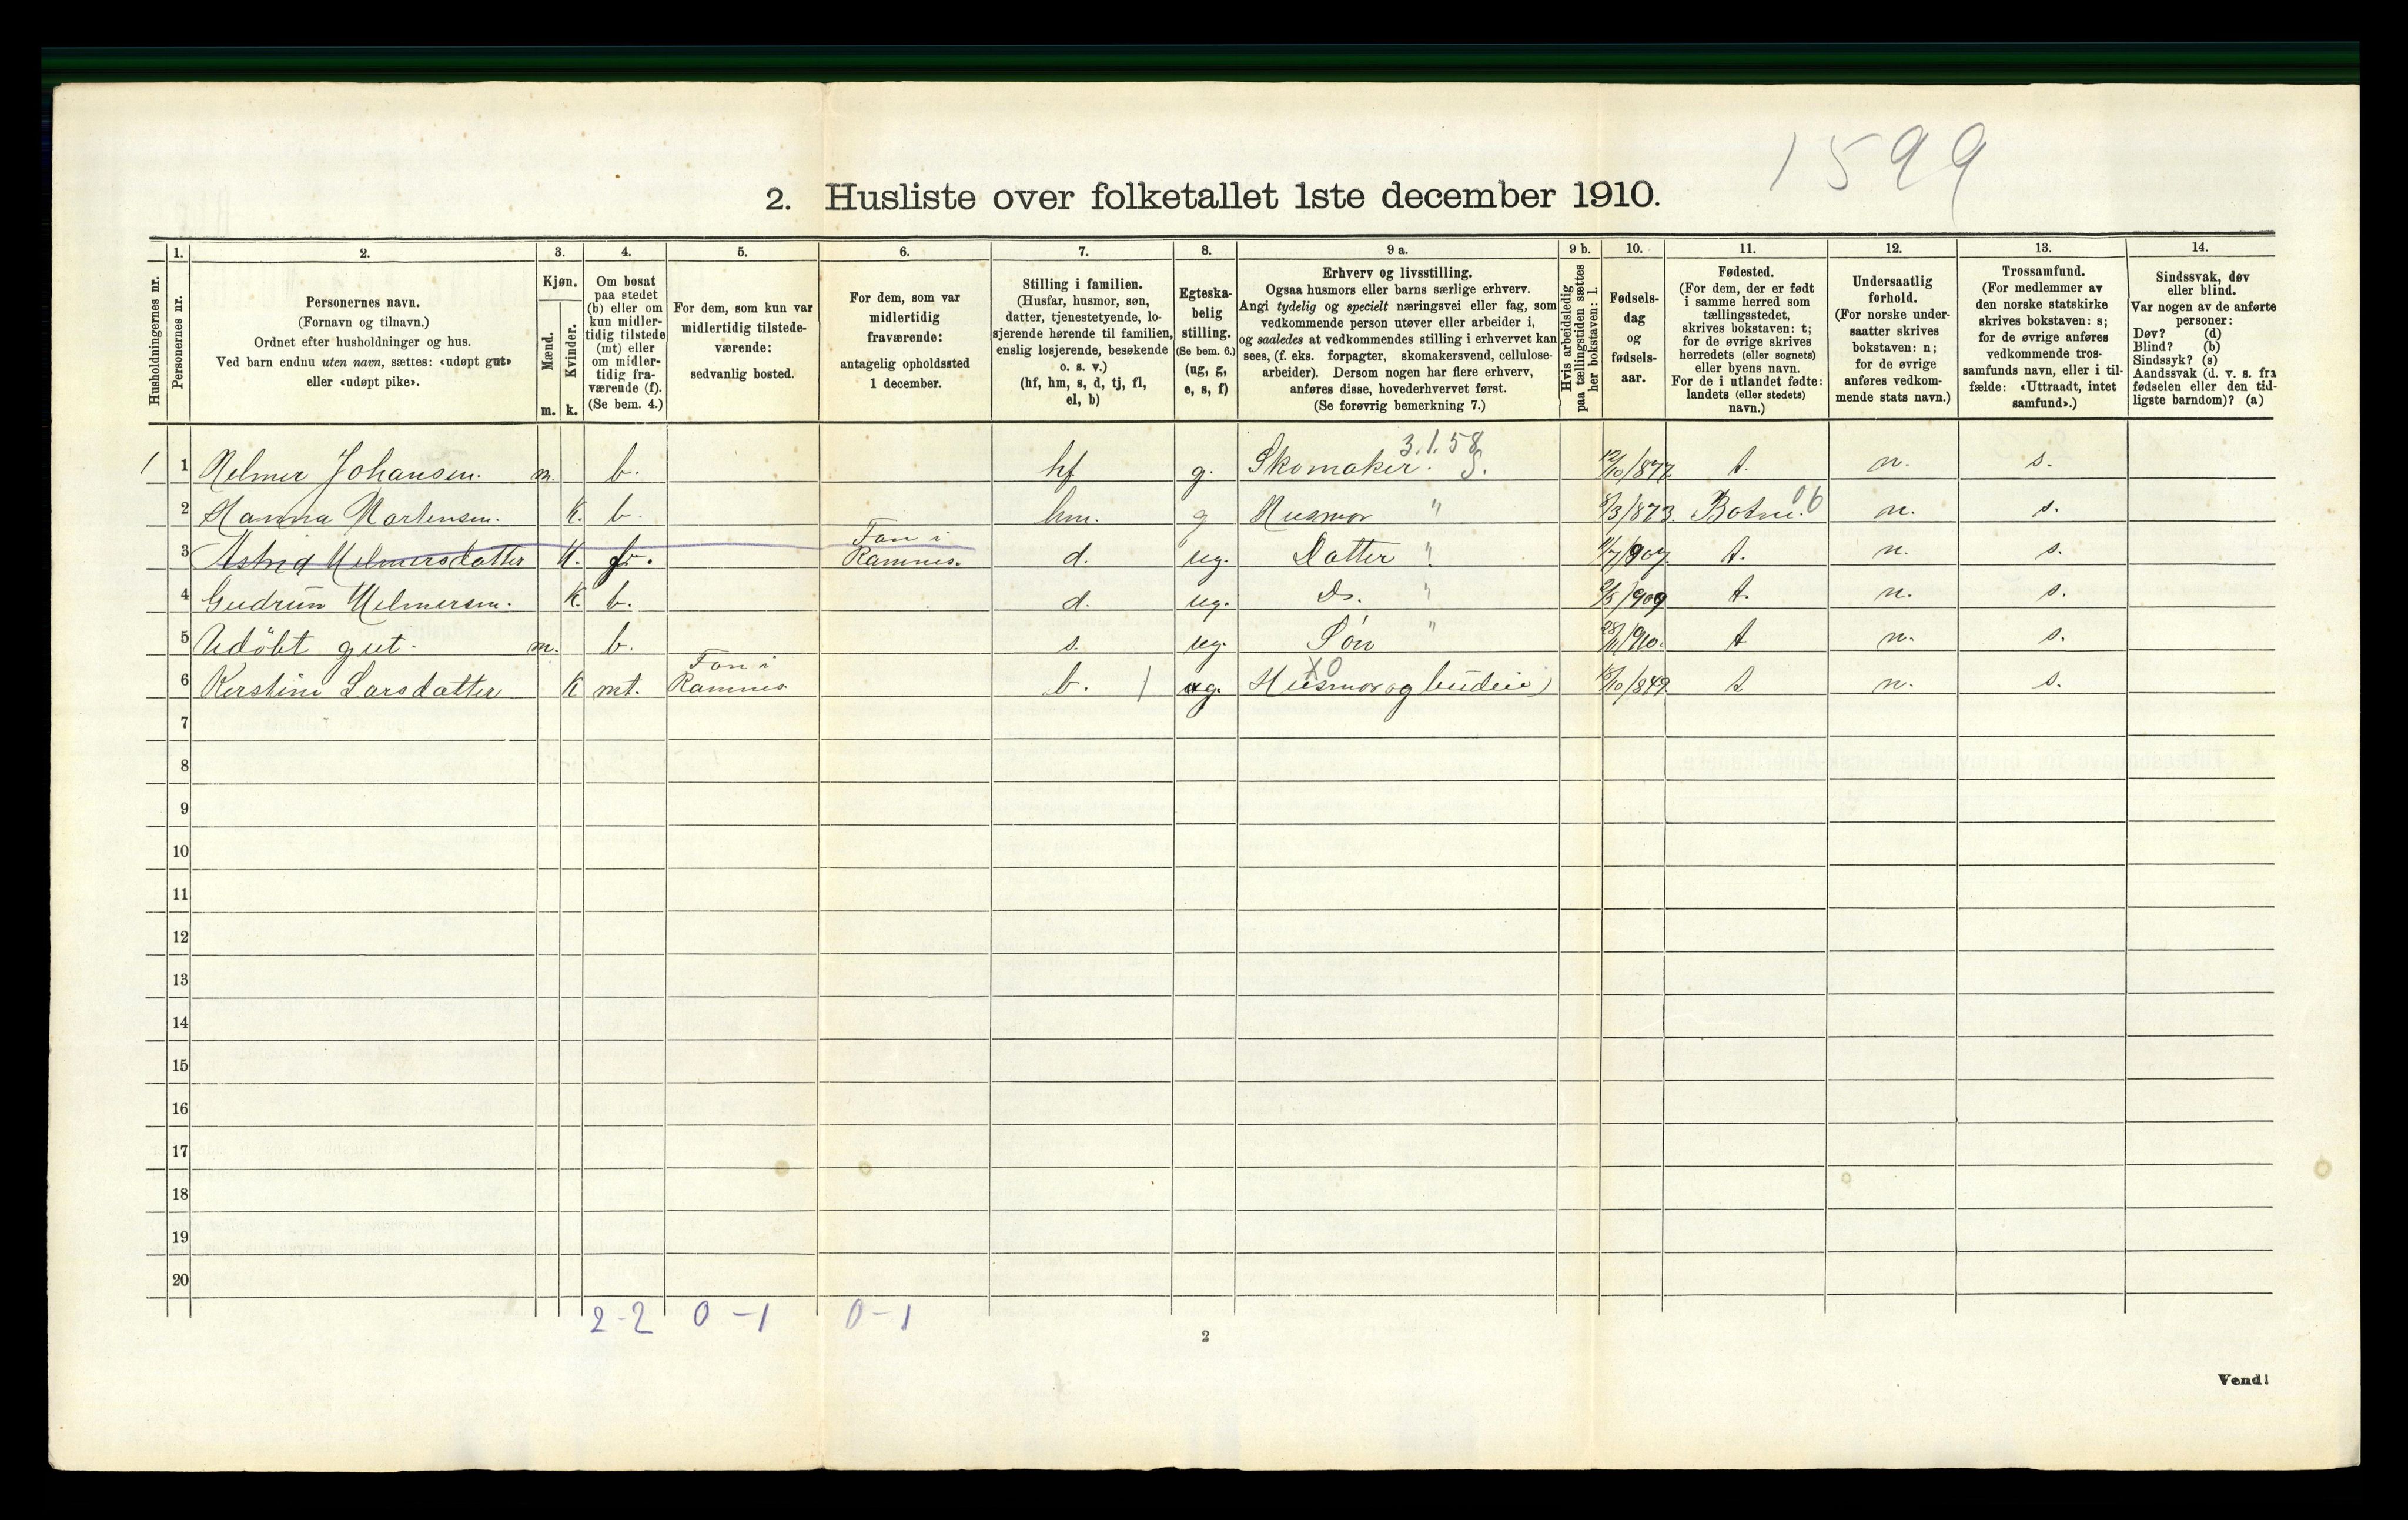 1599
2. Husliste over folketallet 1ste december 1910.
1. 2. 3. 4. 5. 6. 7. 8. 9 a. 9 b. 10. 11. 12. 13. 14.
Husholdningernes nr.
Personernes nr.
Personernes navn.
(Fornavn og tilnavn.)
Ordnet efter husholdninger og hus.
Ved barn endnu uten navn, sættes: «udøpt gut»
eller «udøpt pike».
Kjøn.
Mænd.
Kvinder.
m. k.
Om bosat
paa stedet
(b) eller om
kun midler-
tidig tilstede
(mt) eller
om midler-
tidig fra-
værende (f).
(Se bem. 4.)
For dem, som kun var
midlertidig tilstede-
værende:
sedvanlig bosted.
For dem, som var
midlertidig
fraværende:
antagelig opholdssted
1 december.
Stilling i familien.
(Husfar, husmor, søn,
datter, tjenestetyende, lo-
sjerende hørende til familien,
enslig losjerende, besøkende
o. s. v.)
(hf, hm, s, d, tj, fl,
el, b)
Egteska-
belig
stilling.
(Se bem. 6.)
(ug, g,
e, s, f)
Erhverv og livsstilling.
Ogsaa husmors eller barns særlige erhverv.
Angi tydelig og specielt næringsvei eller fag, som
vedkommende person utøver eller arbeider i,
og saaledes at vedkommendes stilling i erhvervet kan
sees, (f. eks. forpagter, skomakersvend, cellulose-
arbeider). Dersom nogen har flere erhverv,
anføres disse, hovederhvervet først.
(Se forøvrig bemerkning 7.)
Hvis arbeidsledig
paa tællingstiden sættes
her bokstaven: l.
Fødsels-
dag
og
fødsels-
aar.
Fødested.
(For dem, der er født
i samme herred som
tællingsstedet,
skrives bokstaven: t;
for de øvrige skrives
herredets (eller sognets)
eller byens navn.
For de i utlandet fødte:
landets (eller stedets)
navn.)
Undersaatlig
forhold.
(For norske under-
saatter skrives
bokstaven: n;
for de øvrige
anføres vedkom-
mende stats navn.)
Trossamfund.
(For medlemmer av
den norske statskirke
skrives bokstaven: s;
for de øvrige anføres
vedkommende tros-
samfunds navn, eller i til-
fælde: «Uttraadt, intet
samfund».)
Sindssvak, døv
eller blind.
Var nogen av de anførte
personer:
Døv? (d)
Blind? (b)
Sindssyk? (s)
Aandssvak (d. v. s. fra
fødselen eller den tid-
ligste barndom)? (a)
3.1.58
1 1 Helmer Johansen. m. b. hf g. Skomaker. S. 12/10/877. t. n. s.
2 Hanna Martensen. K. b. hm. g Husmor " 8/3/873. Botne. 06 n. s.
Fon i
3 Astrid Helmersdatter K. f. Ramnes. d. ug. Datter " 11/7/907. t. n. s.
4 Gudrun Helmersen. K. b. d. ug. Do. " 2/5/909 t. n. s.
5 Udöbt gut. m. b. s. ug. Søn " 28/11/910. t n. s.
Fon i X0
6 Kerstine Larsdatter K mt. Ramnes. b. g. Husmor og budeie 18/10/849. t n. s.
7
8
9
10
11
12
13
14
15
16
17
18
19
20
2-2 0-1 0-1
2
Vend!